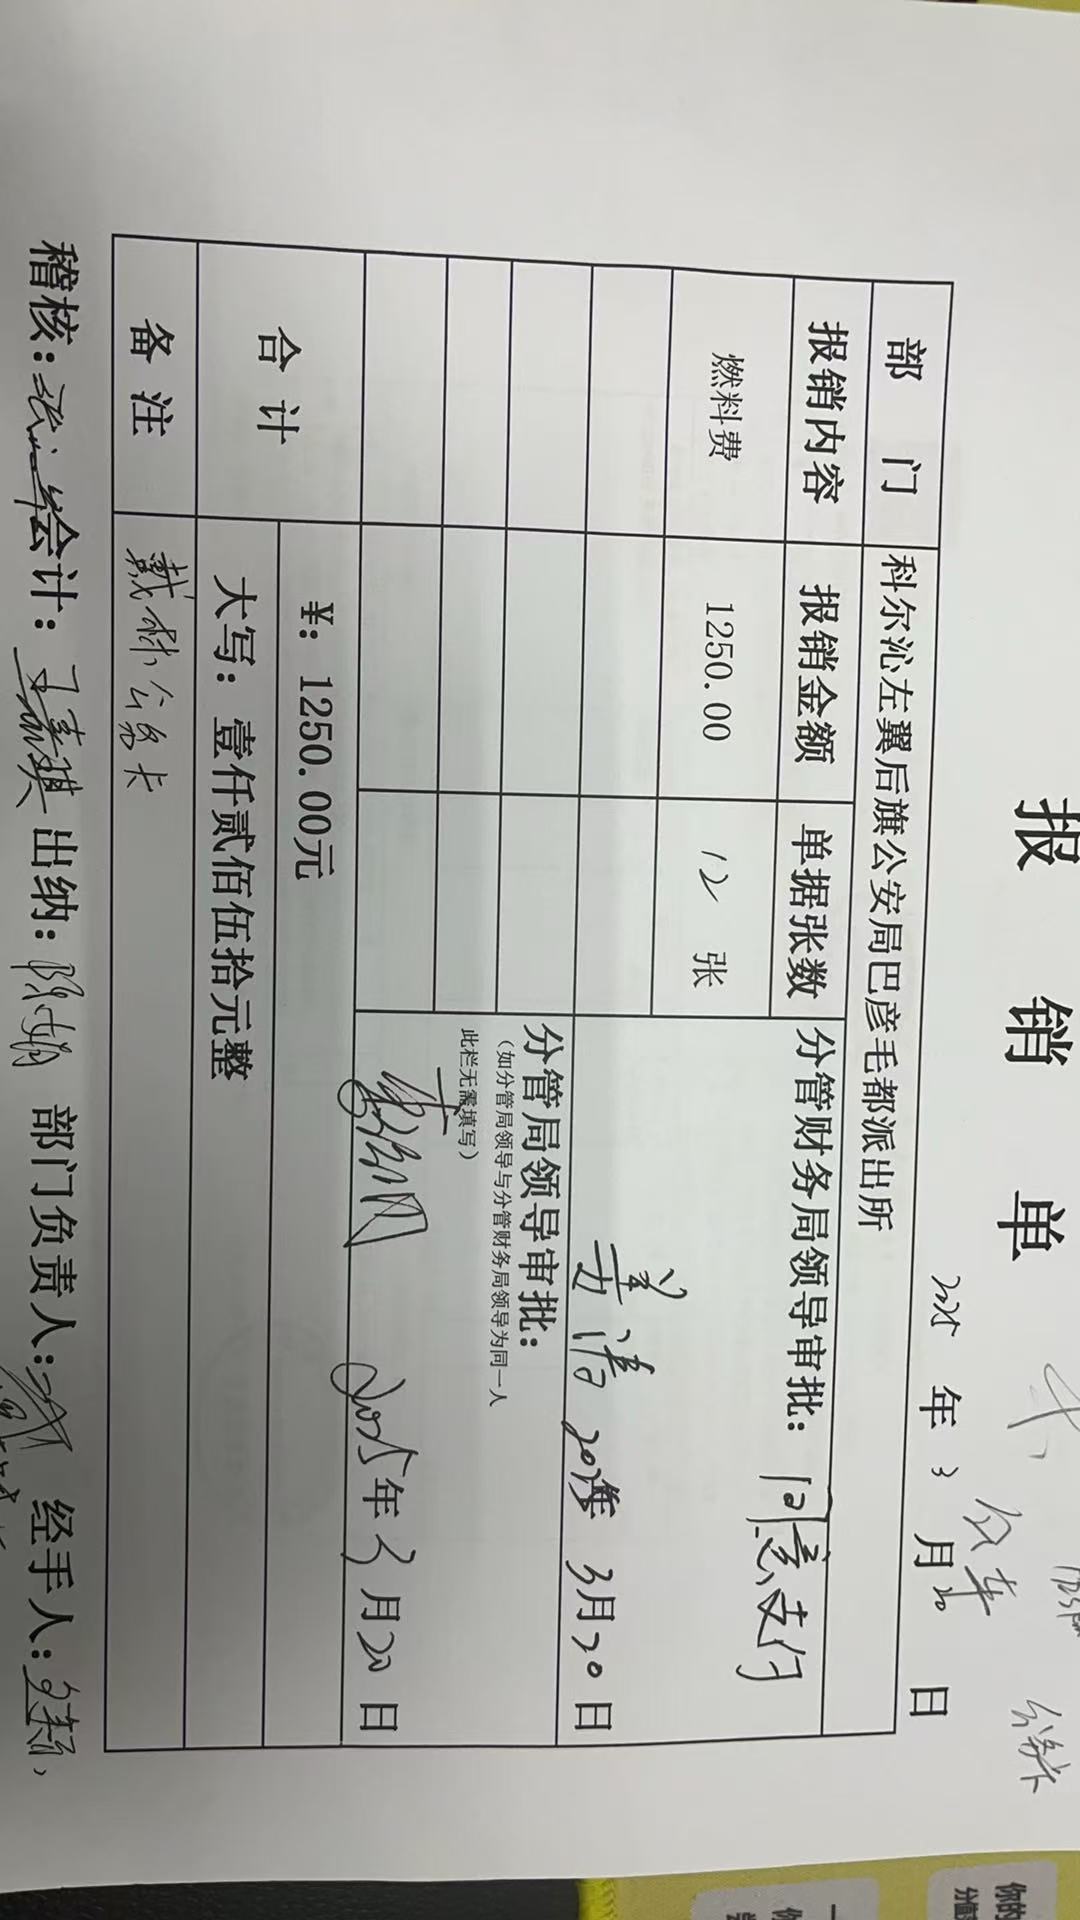 报 销 单
公务卡
公车
2025 年 3 月 20 日
部 门 科尔沁左翼后旗公安局巴彦毛都派出所
报销内容 报销金额 单据张数 分管财务局领导审批: 同意支付
燃料费 1250.00 12 张
2025年 3月20日
分管局领导审批:
(如分管局领导与分管财务局领导为同一人
此栏无需填写)
2025年3月20日
合 计 ¥: 1250.00元
大写: 壹仟贰佰伍拾元整
备 注 戴林公务卡
稽核: 会计: 出纳: 部门负责人: 经手人:
你的
分值